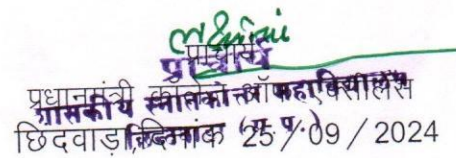 प्राचार्य
प्राचार्य
प्रधानमंत्री कॉलेज ऑफ एक्सीलेंस
शासकीय स्नातकोत्तर महाविद्यालय
छिदवाड़ा, दिनांक 25 / 09 / 2024
(म.प्र.)